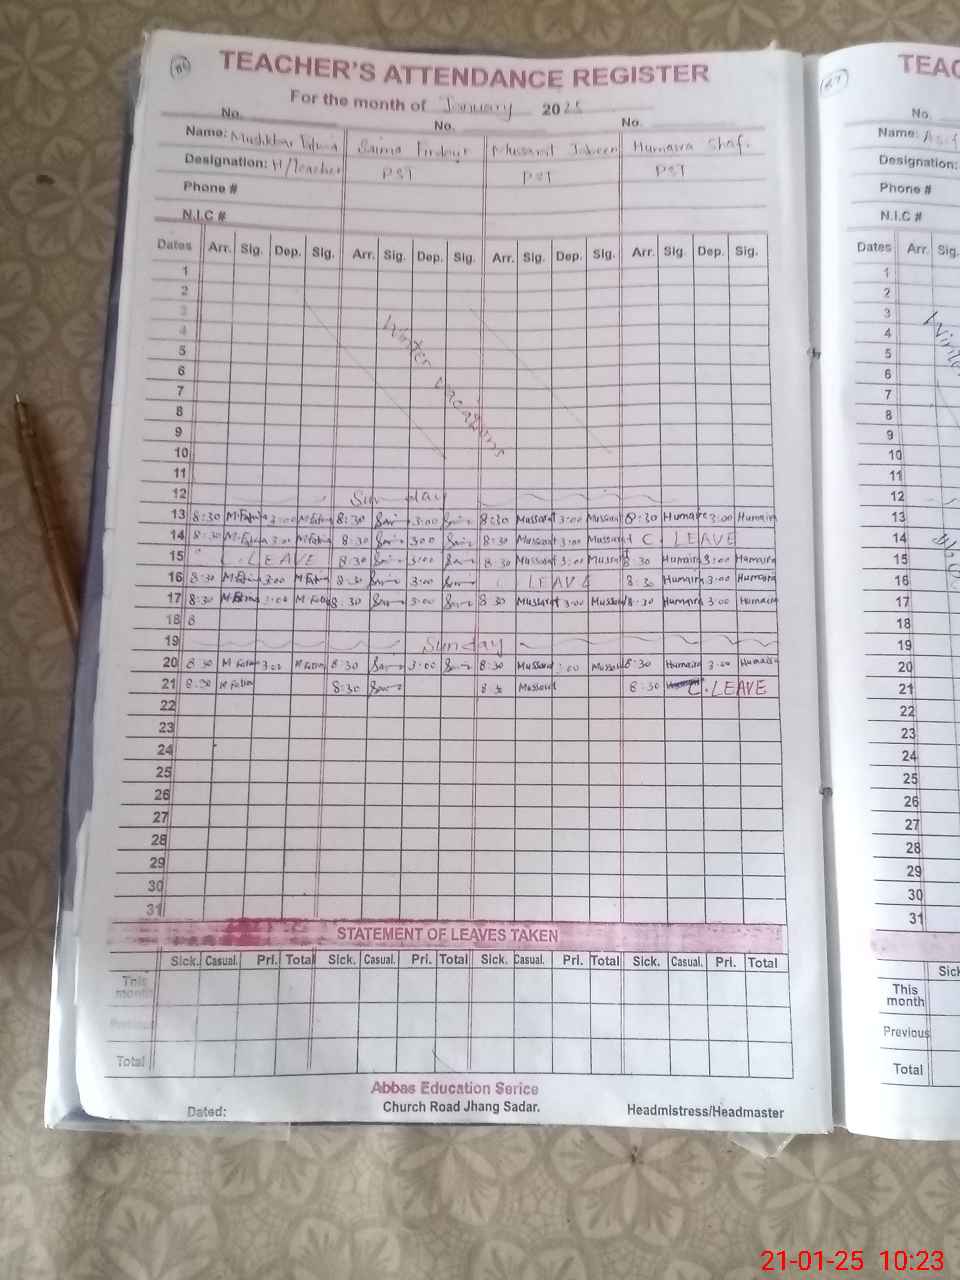 TEACHER'S ATTENDANCE REGISTER
For the month of January 2025
No. No. No.
Name: Saima Firdous Mussarat Jabeen Humaira Shaf.
Designation: H/Teacher PST PST PST
Phone #
N.I.C #
Dates Arr. Sig. Dep. Sig. Arr. Sig. Dep. Sig. Arr. Sig. Dep. Sig. Arr. Sig. Dep. Sig.
1
2
3
4
5
6
7
8
9
10
11
Winter vacations
12 Sunday
13 8:30 M.Fatima 3:00 M.Fatima 8:30 3:00 8:30 Mussarat 3:00 Mussarat 8:30 Humaira 3:00 Humaira
14 8:30 M.Fatima 3:00 M.Fatima 8:30 3:00 8:30 Mussarat 3:00 Mussarat C. LEAVE
15 C. LEAVE 8:30 3:00 8:30 Mussarat 3:00 Mussarat 8:30 Humaira 3:00 Humaira
16 8:30 M.Fatima 3:00 M.Fatima 8:30 3:00 LEAVE 8:30 Humaira 3:00 Humaira
17 8:30 M.Fatima 3:00 M.Fatima 8:30 3:00 8:30 Mussarat 3:00 Mussarat 8:30 Humaira 3:00 Humaira
18 8
19 Sunday
20 8:30 M Fatima 3:00 M Fatima 8:30 3:00 8:30 Mussarat 3:00 Mussarat 8:30 Humaira 3:00 Humaira
21 8:30 M Fatima 8:30 8:30 Mussarat 8:30 C. LEAVE
22
23
24
25
26
27
28
29
30
31
STATEMENT OF LEAVES TAKEN
Sick. Casual. Pri. Total Sick. Casual. Pri. Total Sick. Casual. Pri. Total Sick. Casual. Pri. Total
This month
Previous
Total
Abbas Education Serice
Church Road Jhang Sadar.
Dated: Headmistress/Headmaster
TEAC
No.
Name:
Designation:
Phone #
N.I.C #
Dates Arr. Sig.
1
2
3
4
5
6
7
8
9
10
11
12
13
14
15
16
17
18
19
20
21
22
23
24
25
26
27
28
29
30
31
Sick
This month
Previous
Total
21-01-25 10:23